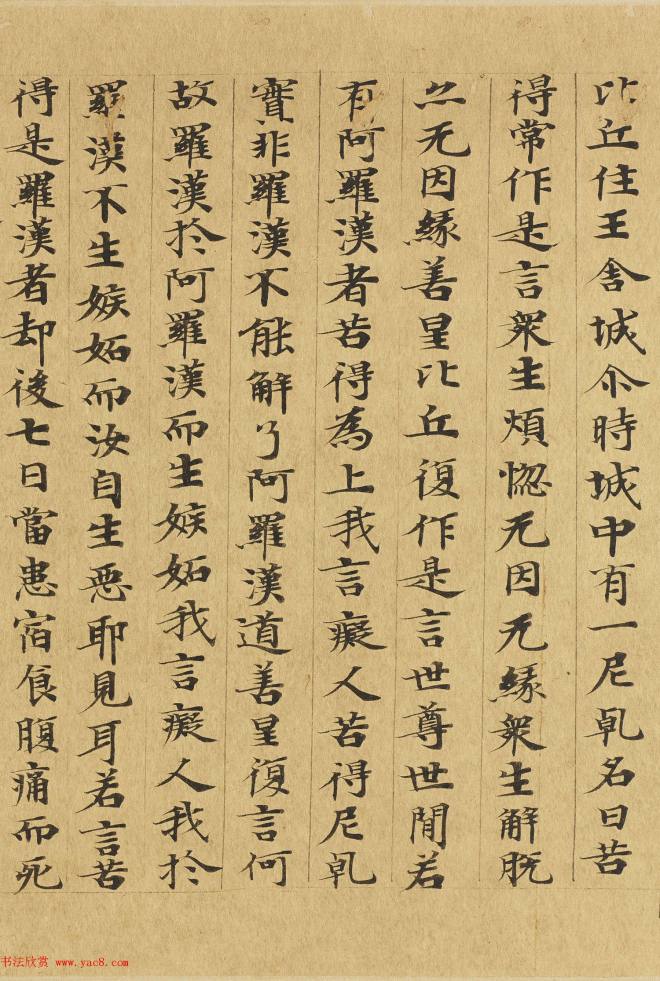 比丘住王舍城尒時城中有一尼乹名曰苦
得常作是言衆生煩惚无因无縁衆生解脫
亦无因縁善星比丘復作是言世尊世間若
有阿羅漢者苦得為上我言癡人苦得尼乹
實非羅漢不能解了阿羅漢道善星復言何
故羅漢於阿羅漢而生嫉妬我言癡人我於
羅漢不生嫉妬而汝自生惡耶見耳若言苦
得是羅漢者却後七日當患宿食腹痛而死
书法欣赏 www.yac8.com